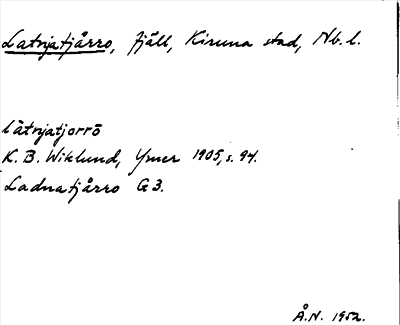 Latnjatjårro, fjäll, Kiruna stad, Nb. l.
lătnjatjorrō
K. B. Wiklund, Ymer 1905, s. 94.
Ladnatjårro G3.
Å.N. 1952.